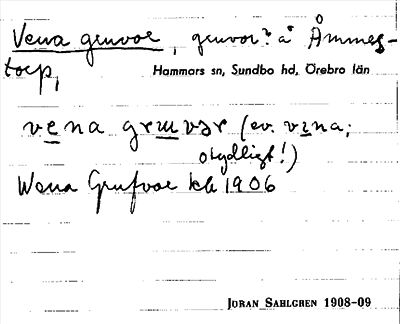 Vena gruvor, gruvor? å Åmmeg-
torp,
Hammars sn, Sundbo hd, Örebro län
vena gruvər (ev. vɪna;
otydligt!)
Wena Grufvor kb 1906
JÖRAN SAHLGREN 1908-09